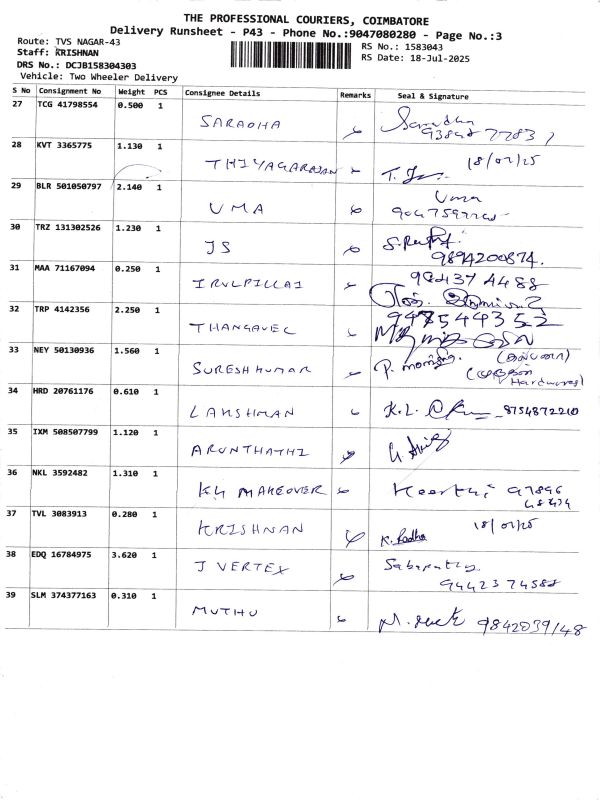 THE PROFESSIONAL COURIERS, COIMBATORE
Delivery Runsheet - P43 - Phone No.:9047080280 - Page No.:3
Route: TVS NAGAR-43
Staff: KRISHNAN
DRS No.: DCJB158304303
Vehicle: Two Wheeler Delivery
RS No.: 1583043
RS Date: 18-Jul-2025
S No Consignment No Weight PCS Consignee Details Remarks Seal & Signature
27 TCG 41798554 0.500 1 SARADHA
28 KVT 3365775 1.130 1 THIYAGARAJAN 18/07/25
29 BLR 501050797 2.140 1 UMA Uma
30 TRZ 131302526 1.230 1 JS 9894200874.
31 MAA 71167094 0.250 1 IRULPILLAI 994374488
32 TRP 4142356 2.250 1 THANGAVEL
33 NEY 50130936 1.560 1 SURESH KUMAR Hardwares)
34 HRD 20761176 0.610 1 LAKSHMAN K.L. 8754872210
35 IXM 508507799 1.120 1 ARUNTHATHI
36 NKL 3592482 1.310 1 K4 MAKEOVER Keerthi 97896
37 TVL 3083913 0.280 1 KRISHNAN K. Radha 18/07/25
38 EDQ 16784975 3.620 1 J VERTEX Sabapathy
9442374588
39 SLM 374377163 0.310 1 MUTHU 9842039148